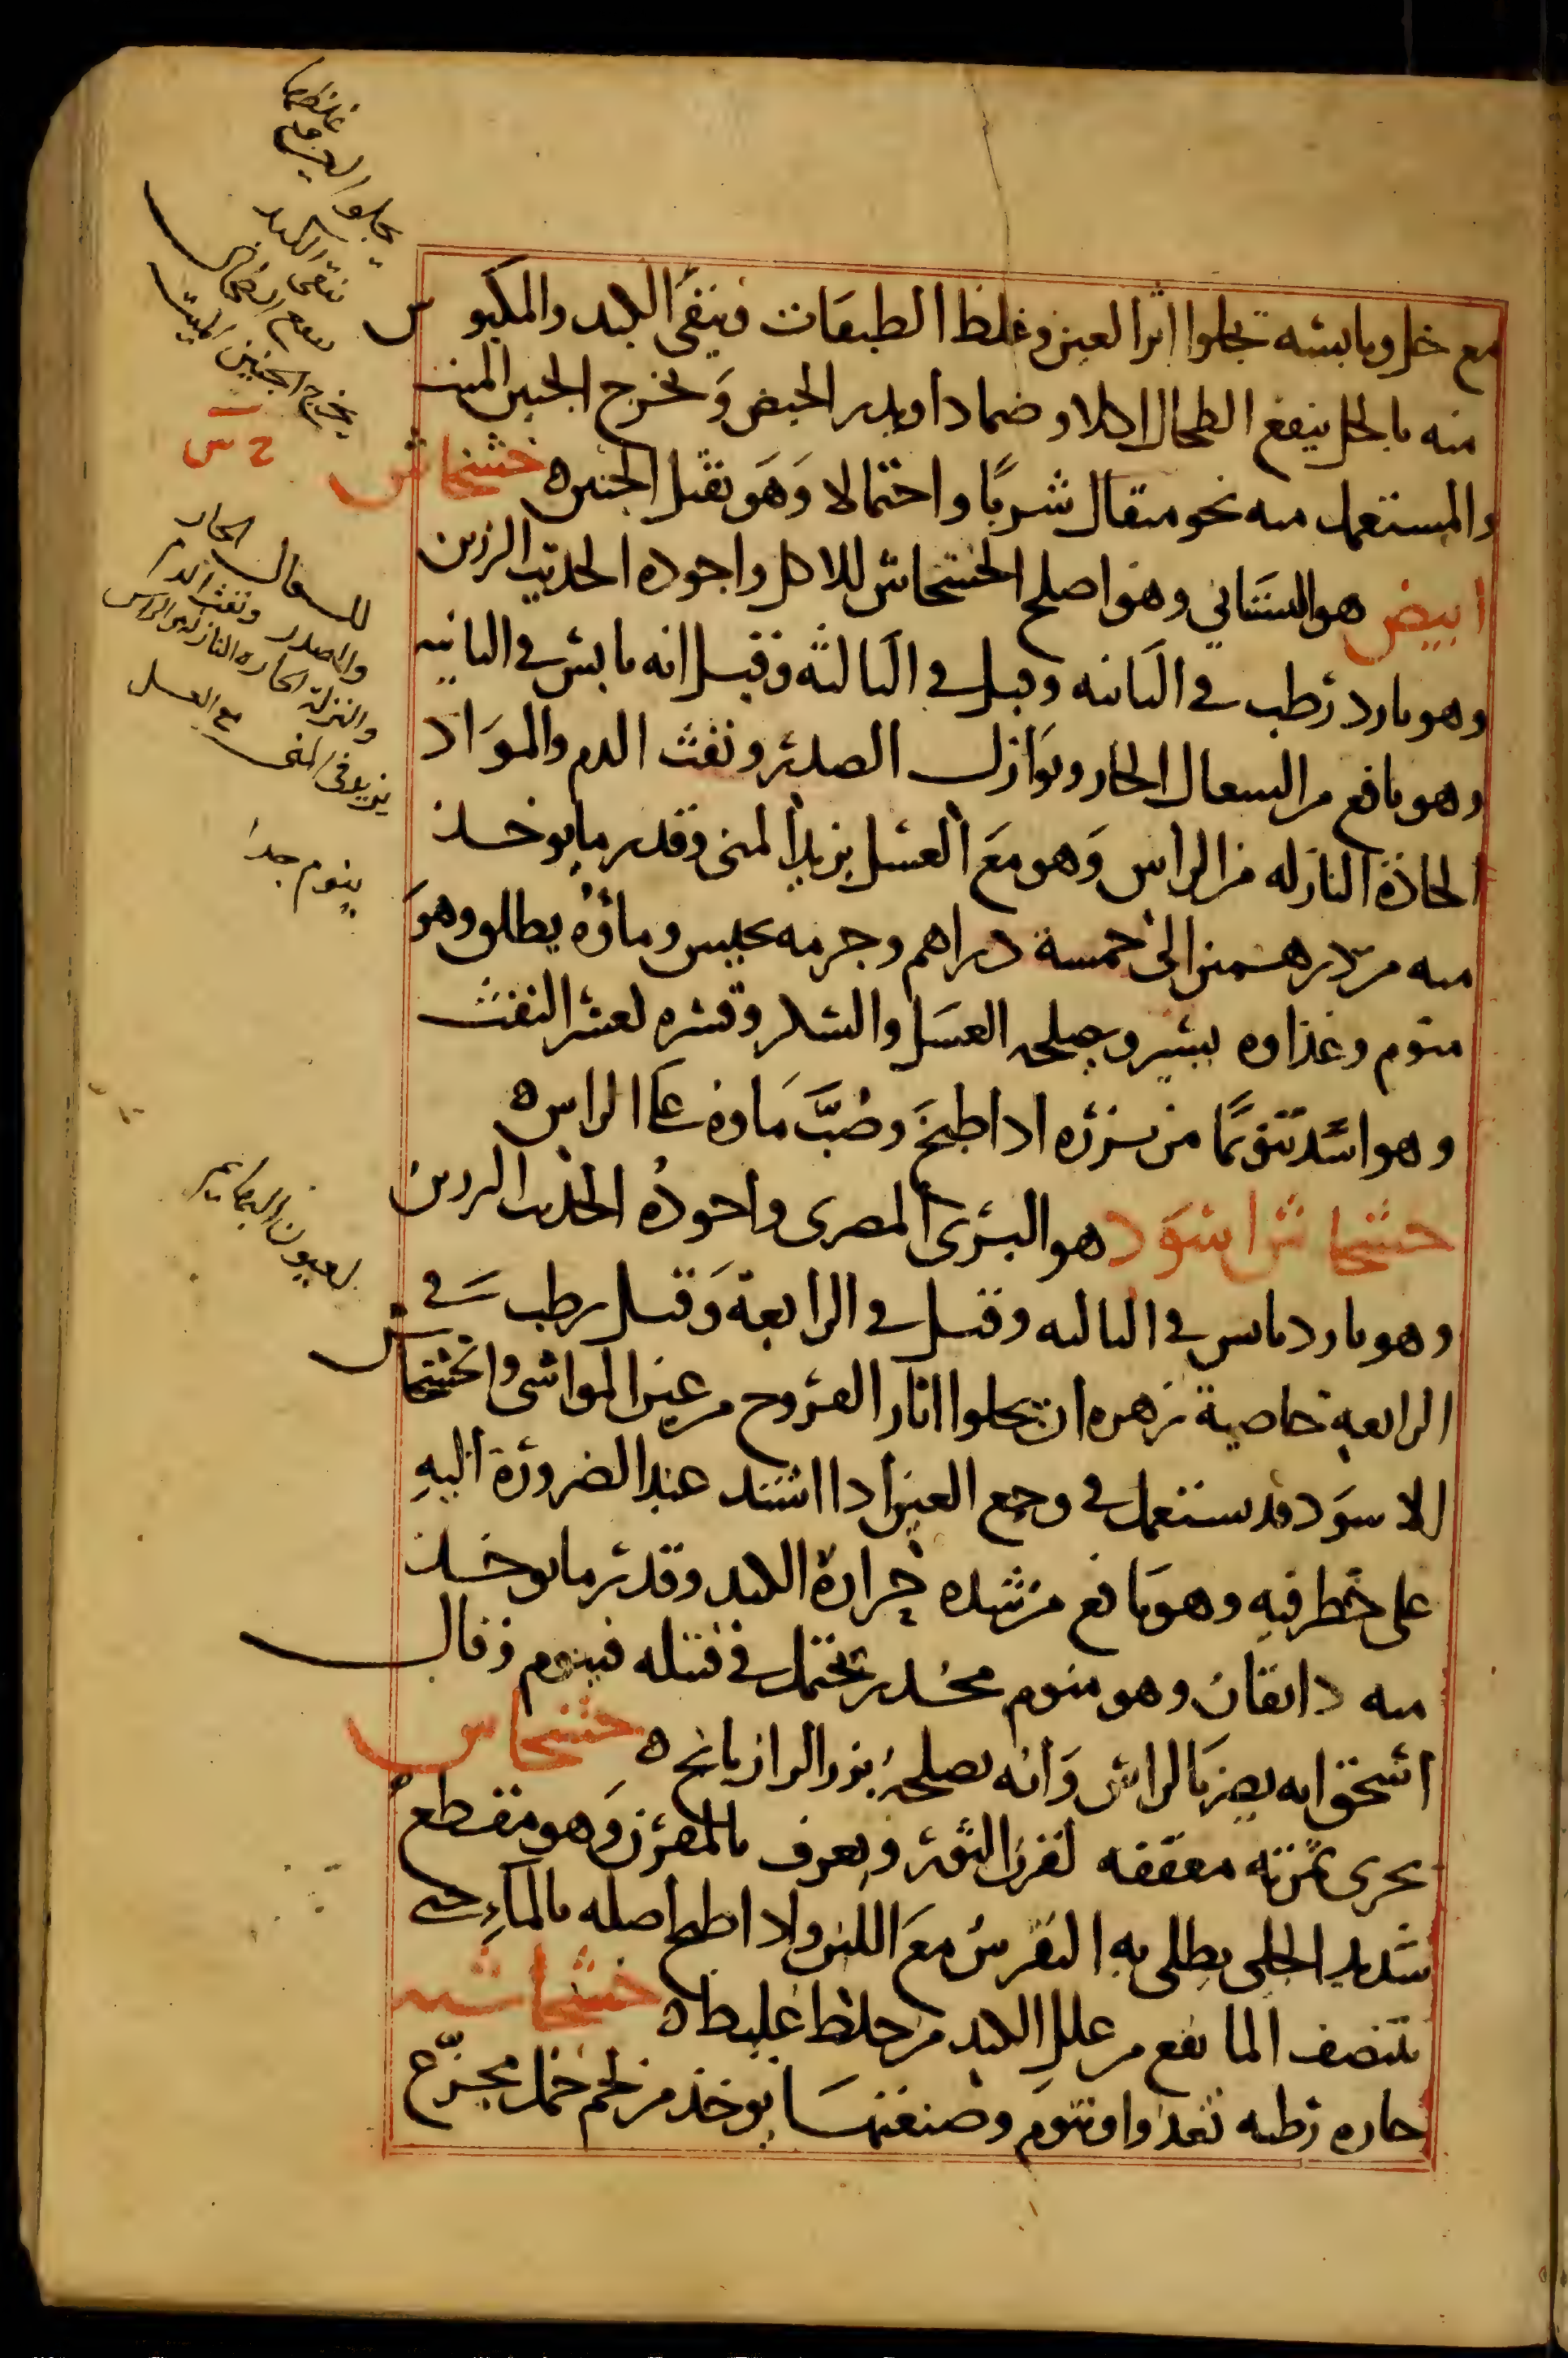 مع خل ويابسه تجلوا اثر العين وغلظ الطبقات وينقي الكبد والمكبوس
منه بالخل ينفع الطحال اكلا وضمادا ويدر الحيض ويخرج الجنين الميت
والمستعمل منه نحو مثقال شربًا واحتمالا وَهَو يقتل الجنين ه خشخاش
ابيض هو البستاني وهو اصلح الخشخاش للاكل واجوده الحديث الرزين
وهو بارد رَطب في الثانيه وقيل في الثالثه وقيل انه يابس في الثانيه
وهو نافع من السعال الحار ونوَازل الصدر ونفث الدم والموَاد
الحادة النازله من الراس وَهو معَ العسل يزيد المنى وقدر ما يوخذ
منه من درهمين الى خمسة دراهم وجرمه يحبس وماؤه يطلق وهوَ
منوم وغذاوه يسير ويصلحه العسَل والسكر وقشره لعسر النفث
وهو اشد تنويمًا من بزره اذا طبخَ وصُبَّ مَاوه على الراس ه
خشخاش اسوَد هو البرى المصرى واجودهُ الحديث الرزين
وهو بارد يابس في الثالثه وقيل في الرابعة وَقيل رطب في
الرابعه خاصية زهره ان يجلوا اثار القروح من عين المواشى والخشخاش
الاسوَد قد يستعمل في وجع العين اذا اشتد عند الضرورة اليهِ
على خطر فيه وهو نافع من شده حرارة الكبد وقدر ما يوخذ
منه دانقان وهو منوم مخدر يحتمل في فتيله فينوم وقال
اسحق انه يضر بالراس وَانه يصلحهُ بزر الرازيانج ه خشخاش
بحرى ثمرته معقفه كقرن الثور ويعرف بالمقرن وَهو مقطع
شديد الجلى يطلى به النقرس معَ اللبن واذا طبخ اصله بالماءِ حتى
يتنصف الما نفع من عللِ الكبد من خلط غليط ه خشخاشيه
حاره رَطبه تغذوا وتنوم وصنعتهَا يوخذ من لحم حمل مجزّع
غلظها
يجلوا العين و
ينقى الكبد
ينفع الطحال
يخرج الجنين الميت
للسعال الحار
والصدر ونفث الدم
والنزلة الحاره النازله من الراس
يزيد في المنى مع العسل
ينوم جدا
لعيون البهايم